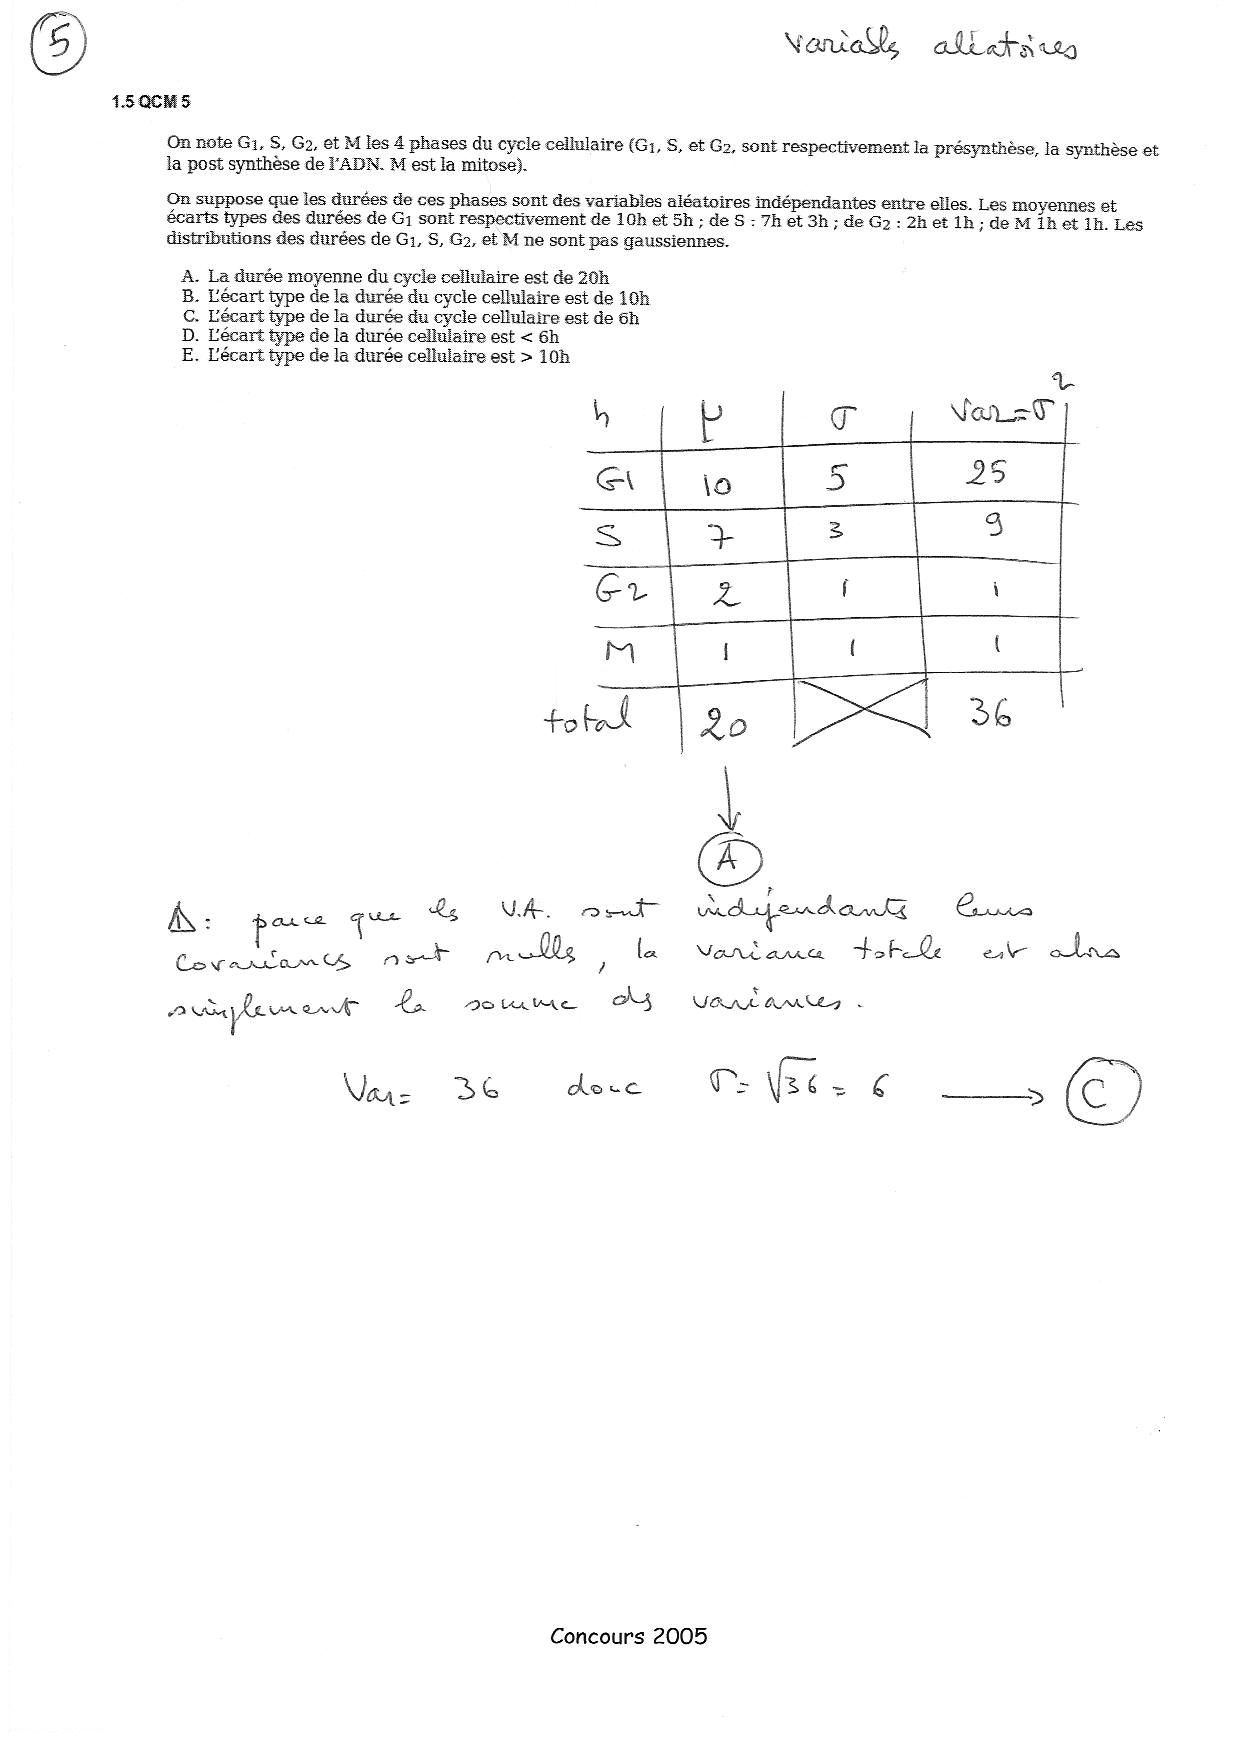 5
Variables aléatoires
1.5 QCM 5
On note G1, S, G2, et M les 4 phases du cycle cellulaire (G1, S, et G2, sont respectivement la présynthèse, la synthèse et
la post synthèse de l'ADN. M est la mitose).
On suppose que les durées de ces phases sont des variables aléatoires indépendantes entre elles. Les moyennes et
écarts types des durées de G1 sont respectivement de 10h et 5h ; de S : 7h et 3h ; de G2 : 2h et 1h ; de M 1h et 1h. Les
distributions des durées de G1, S, G2, et M ne sont pas gaussiennes.
A. La durée moyenne du cycle cellulaire est de 20h
B. L'écart type de la durée du cycle cellulaire est de 10h
C. L'écart type de la durée du cycle cellulaire est de 6h
D. L'écart type de la durée cellulaire est < 6h
E. L'écart type de la durée cellulaire est > 10h
h μ σ Var=σ²
G1 10 5 25
S 7 3 9
G2 2 1 1
M 1 1 1
total 20 36
A
⚠: parce que les V.A. sont indépendants leurs
covariances sont nulles, la variance totale est alors
simplement la somme des variances.
Var= 36 donc σ=√36 = 6 → C
Concours 2005